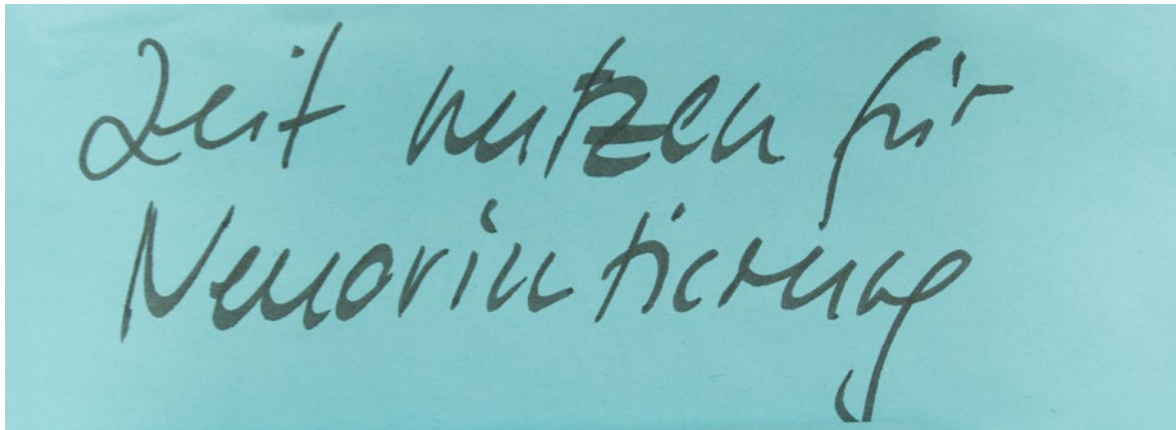 Zeit nutzen für
Neuorintierung